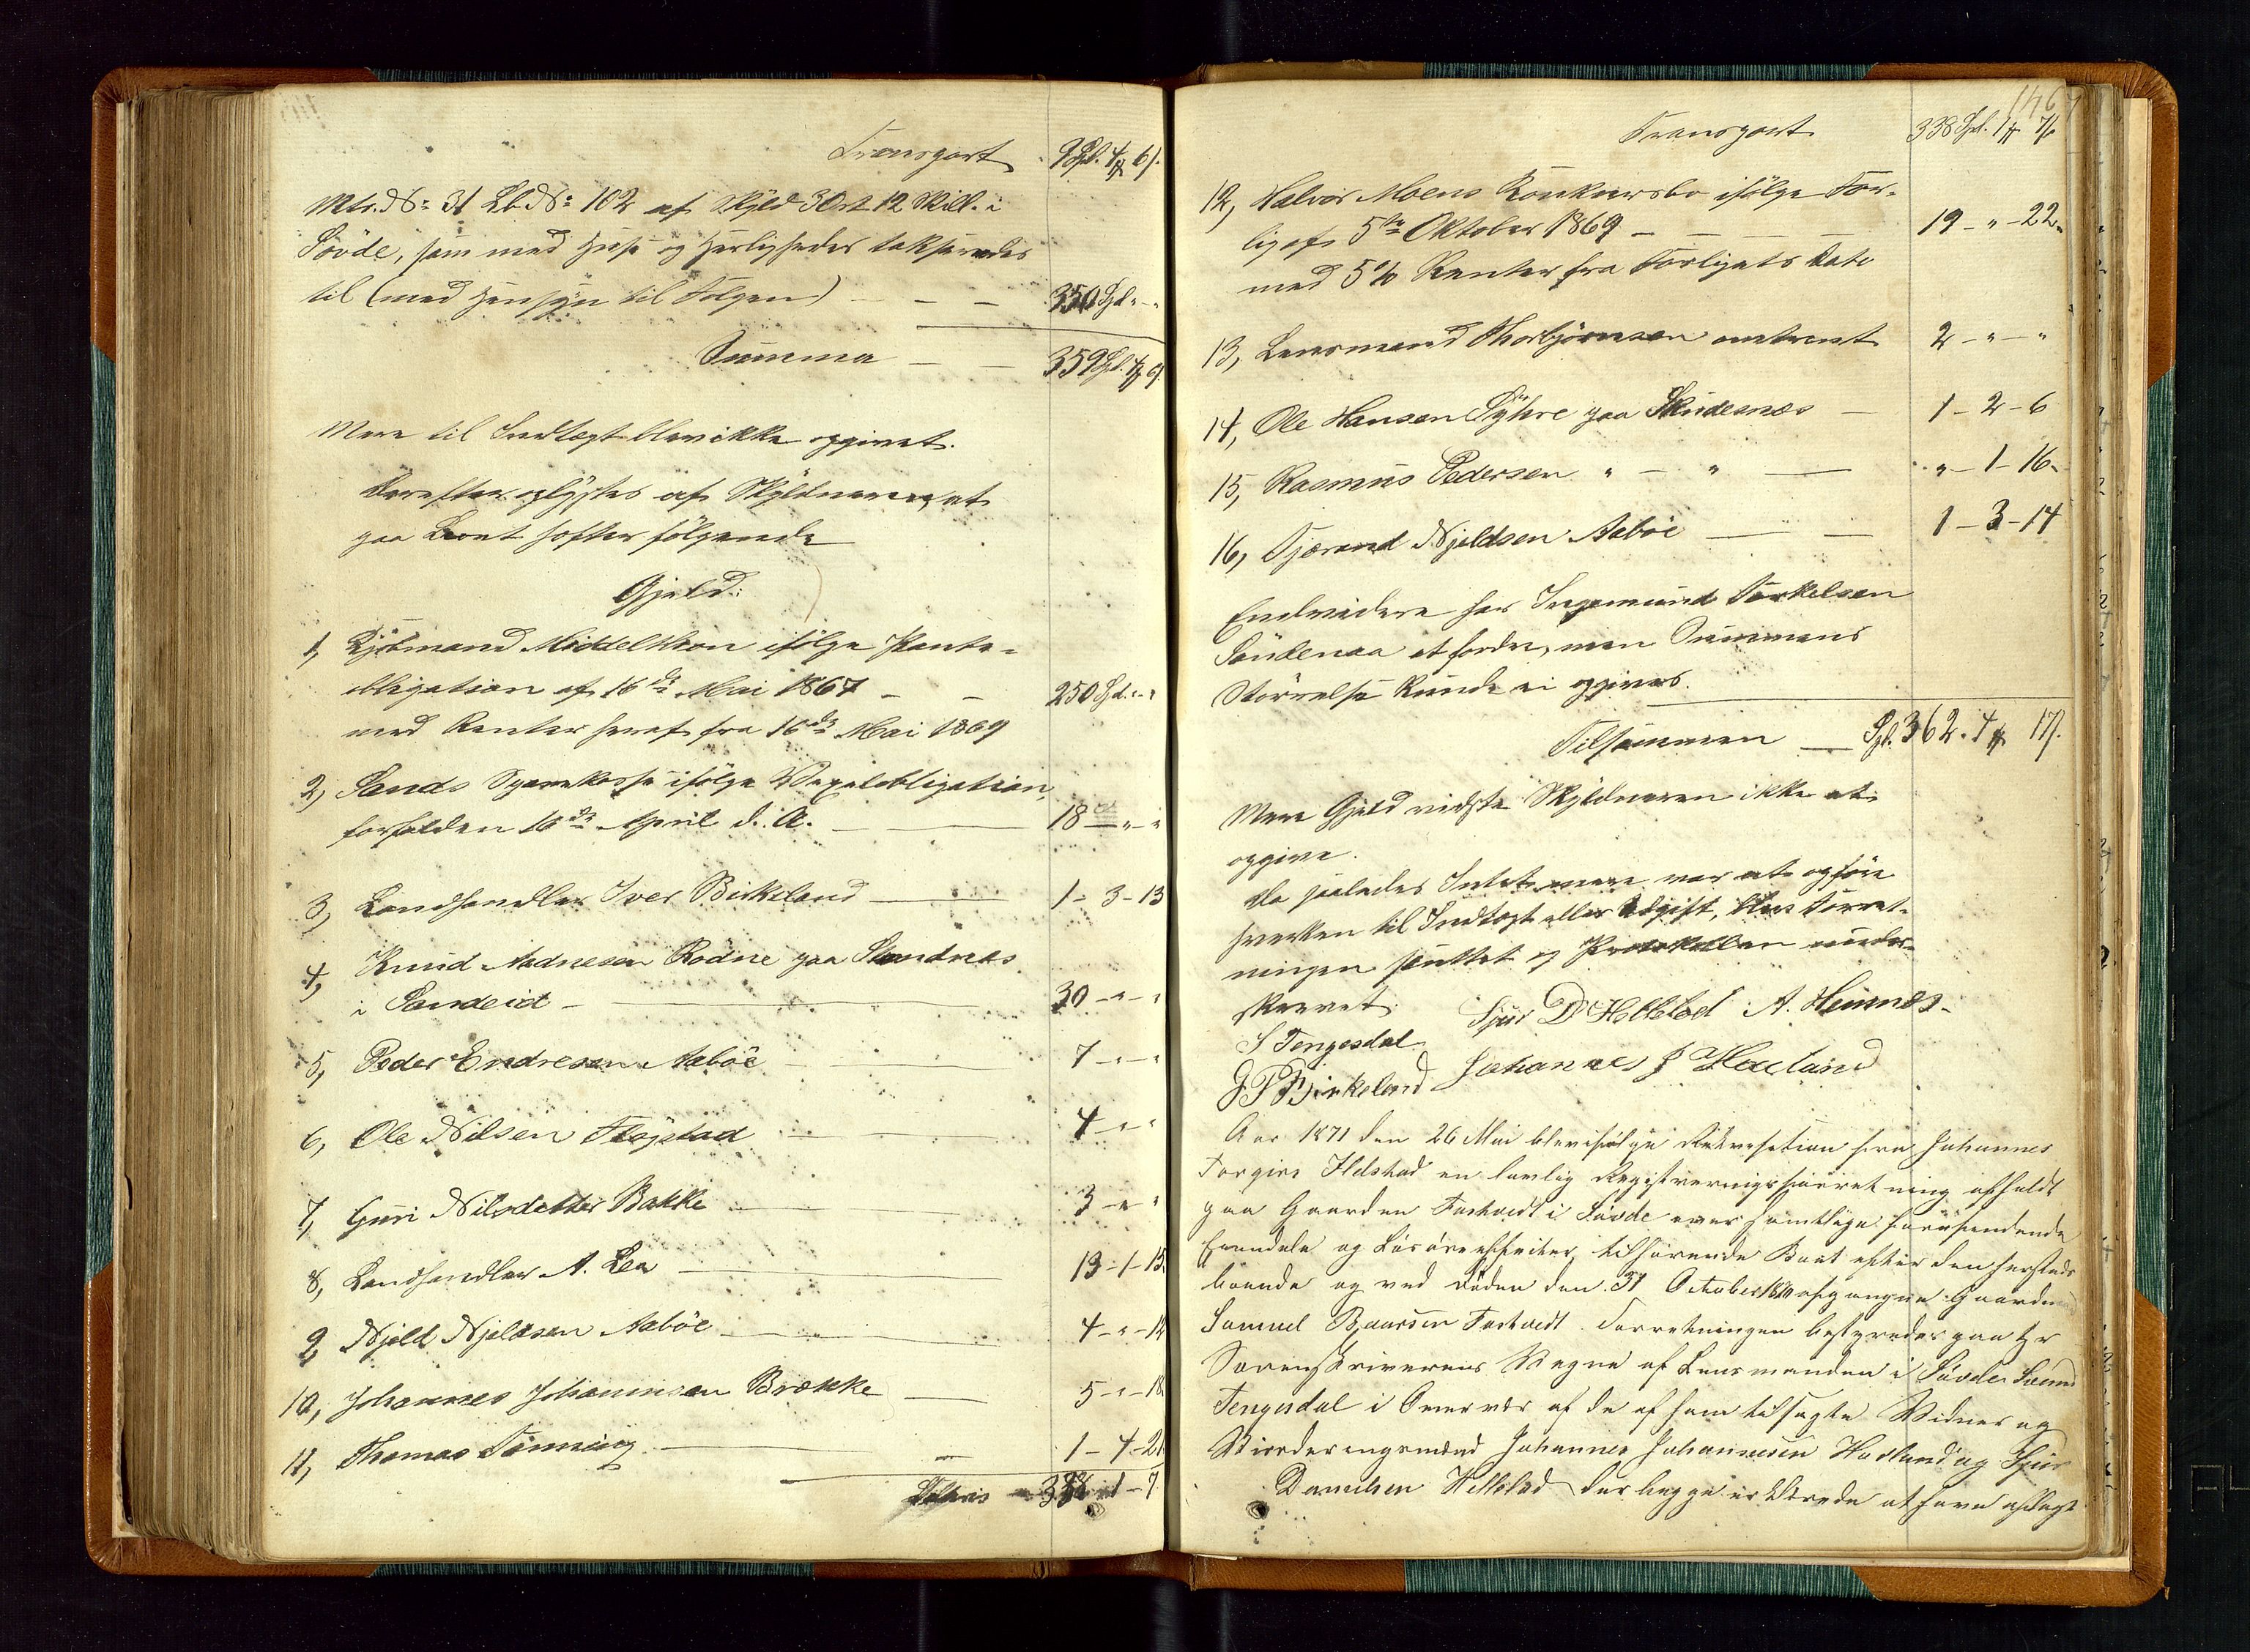 Transport 9 Spd. 4 # 6 s.
Mtr. No 31 Lb. No 102 af Skyld 3 Ort 12 Skill. i
Sövde, som med Huse og Herligheder taksseredes
til (med Hensyn til Følgen) — — 350 Spd. " - "
Summa — — 359 Spd. 4 # 6 s.
Mere til Indtægt blev ikke opgivet.
Derefter oplystes af Skyldneren, at
paa Boet hefter følgende
Gjeld:
1, Kjöbmand Middelthon ifölge Pante-
obligation af 16de Mai 1867 — — 250 Spd. " - "
med Renter heraf fra 16de Mai 1869
2, Sands Sparekasse ifölge Vexelobligation,
forfalden 16de April d. A. — — 18 - " - "
3, Landhandler Iver Birkeland — 1 - 3 - 13
4, Knud Aadnesen Rödne paa Standnes
i Sandeid — 30 - " - "
5, Peder Endresen Aaböe — 7 - " - "
6, Ole Nilsen Fløjstad — 4 - " - "
7, Guri Nilsdatter Bakke — 3 - " - "
8, Landhandler A. Lea — 13 - 1 - 15
9, Njeld Njeldsen Aaböe — 4 - " - 12
10, Johannes Johannesen Brække — 5 - " - 18
11, Thomas Tönning — 1 - 4 - 21
Lateris 338 - 1 - 7
146
Transport 338 Spd. 1 # 7 s
12, Halvor Moens Konkursbo ifölge For-
lig af 5te Oktober 1869 — — — 19 - " - 22
med 5% Renter fra Forligets Dato
13, Lensmand Thorbjörnsen omtrent 2 - " - "
14, Ole Hansen Syhre paa Skudesnæs — 1 - 2 - 6
15, Rasmus Pedersen " — " — " - 1 - 16
16, Tjerand Njeldsen Aaböe — — 1 - 3 - 14
Endvidere har Ingemund Torkelsen
Söndenaa at fordre, men Summens
Störrelse kunde ei opgives.
Tilsammen — Spd. 362. 4 # 17 s.
Mere Gjeld vidste Skyldneren ikke at
opgive.
Da saaledes Intet mere var at opföre
hverken til Indtægt eller Udgift, blev Forret-
ningen sluttet og Protokollen under-
skrevet.
S Tengesdal Sjur D Helleland A. Heimnes.
G P Birkeland Johannes J Houland
Aar 1871 den 26 Mai blev ifølge Rekvisition fra Johannes
Torgirs Ilstad en lovlig Registreringsforretning afholdt
paa Gaarden Fastvedt i Søvde over samtlige forefindende
Eiendele og Løsøreeffecter, tilhørende Boet efter den hersteds
boende og ved Døden den 31 October 1870 afgangne Gaardmand
Samuel Baarsen Fastvedt. Forretningen bestyredes paa Hr
Sorenskriverens Vegne af Lensmanden i Søvde Svend
Tengesdal i Overvær af de af ham tilsagte Vidner og
Vurderingsmænd Johannes Johannesen Hauland og Sjur
Danielsen Helleland der begge erklærede at have aflagt